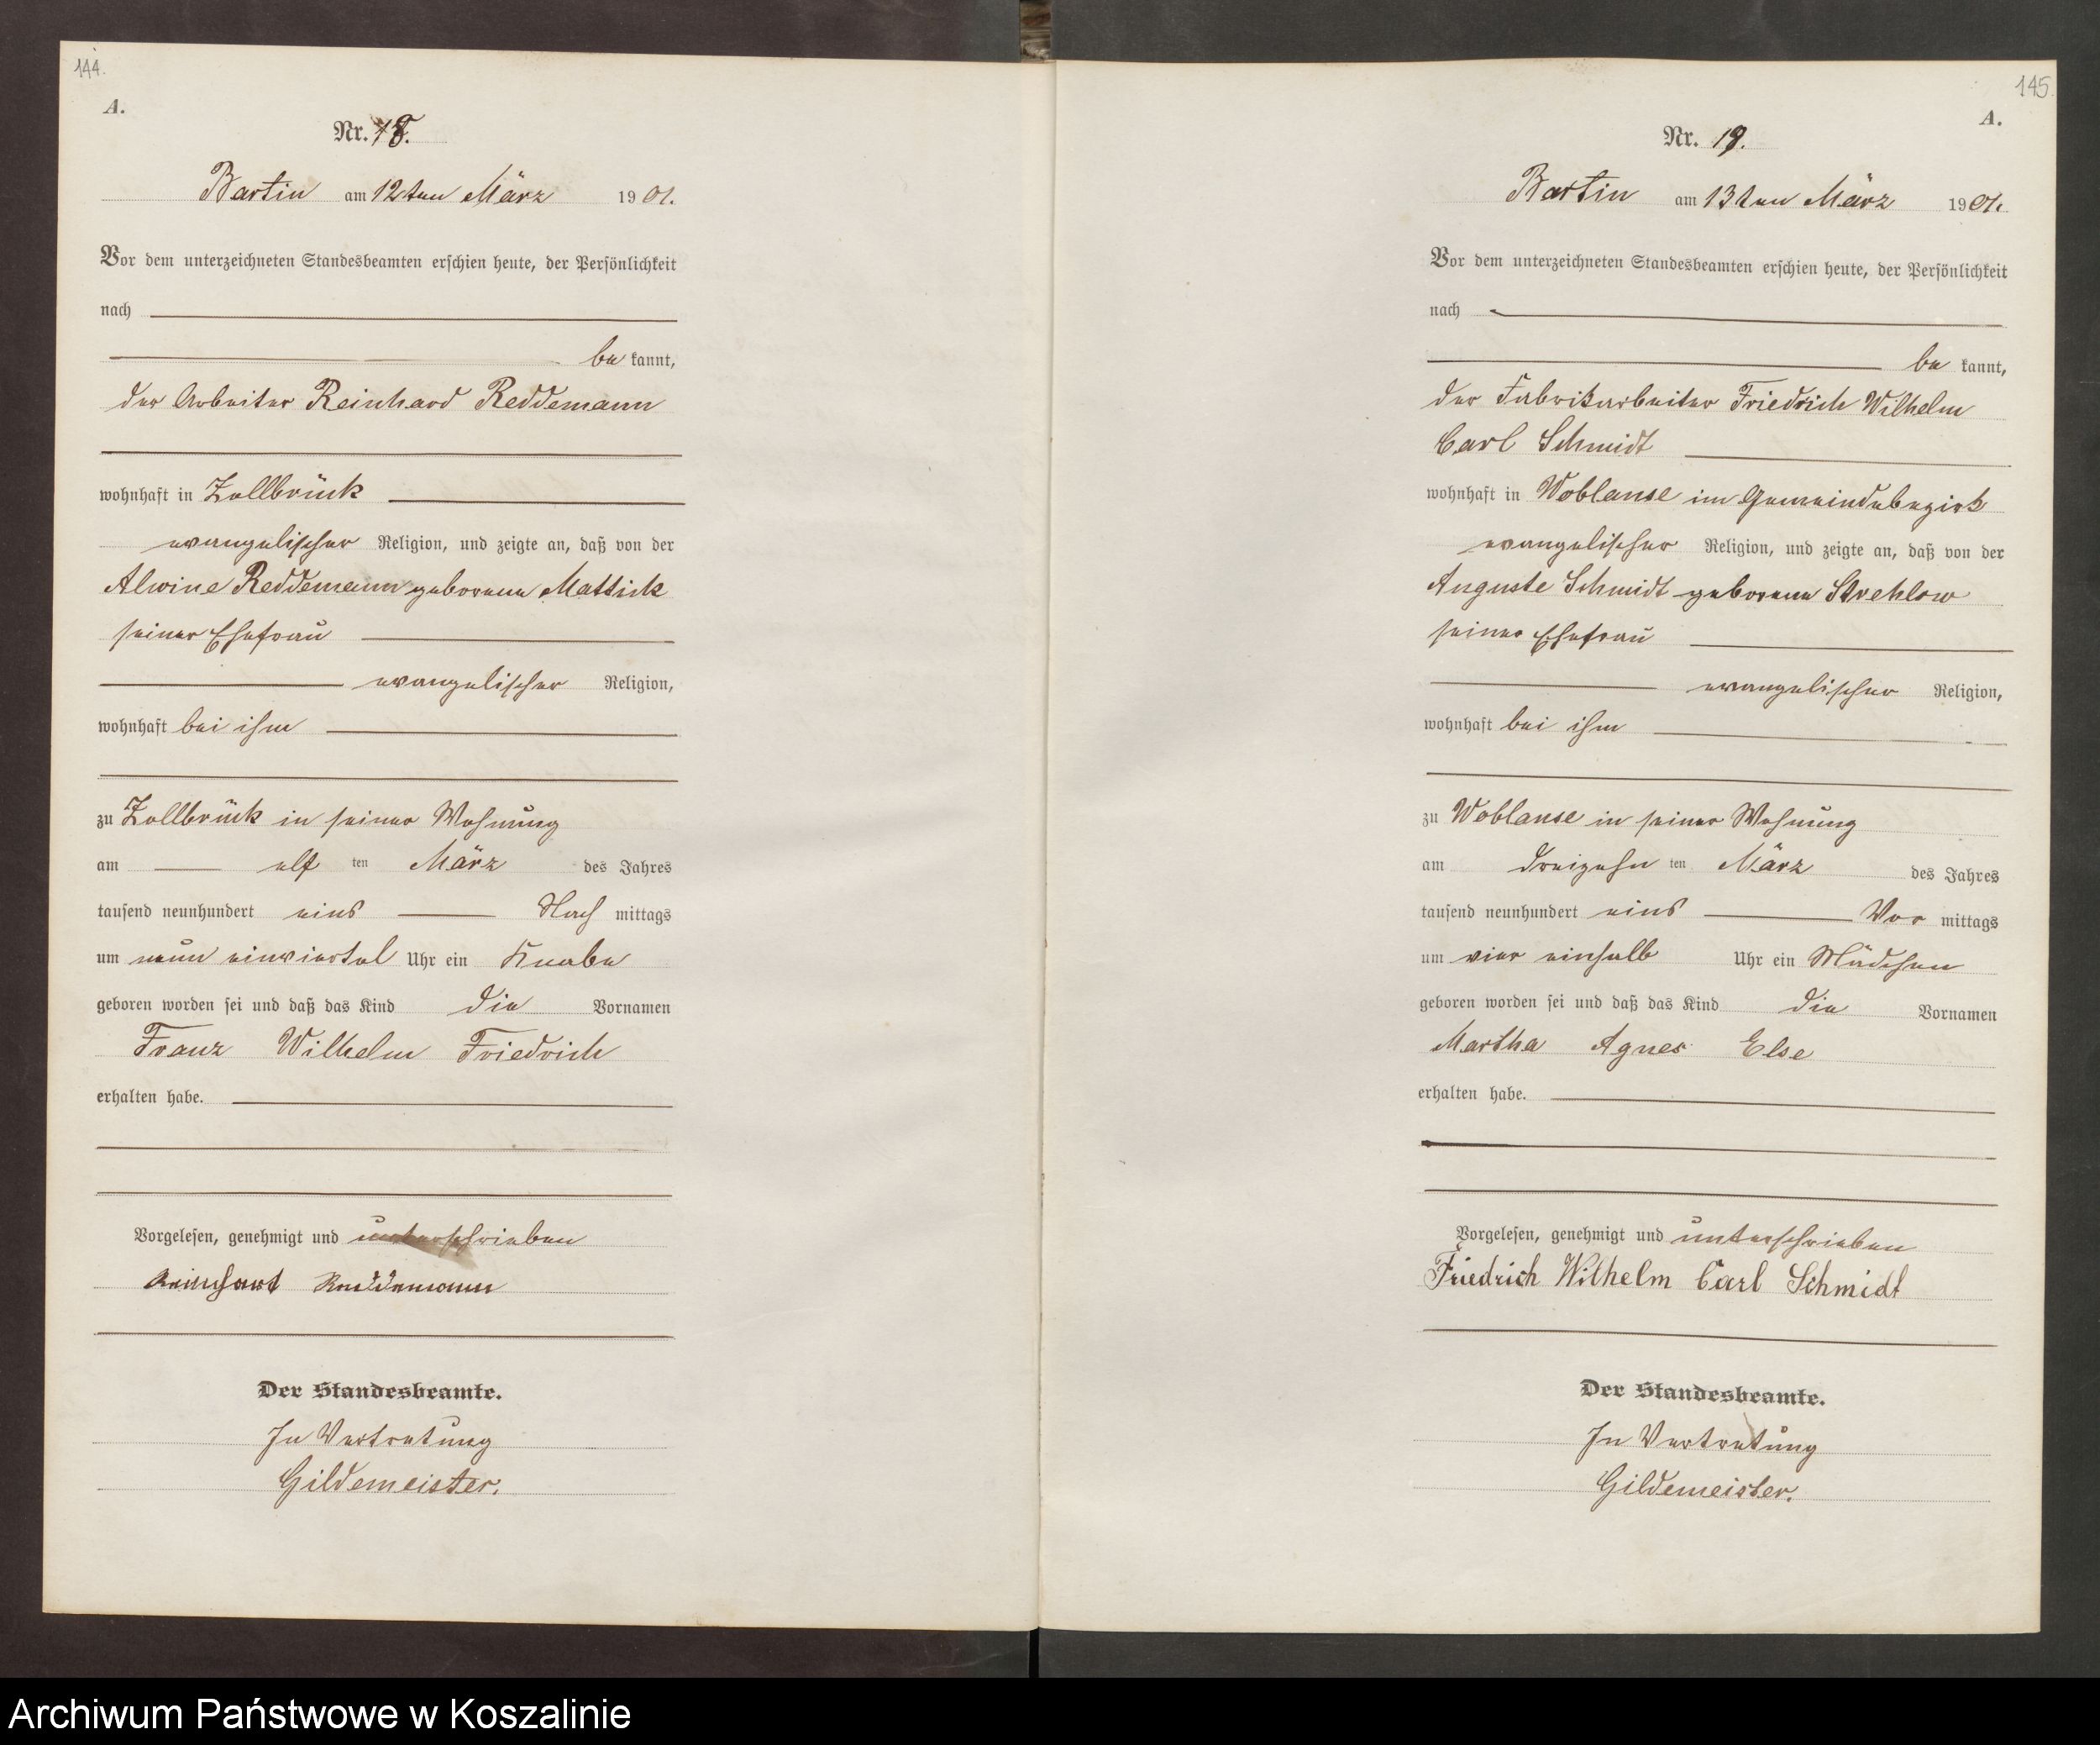 144.
A.
Nr. 18.
Bartin am 12ten März 1901.
Vor dem unterzeichneten Standesbeamten erschien heute, der Persönlichkeit
nach
be kannt,
der Arbeiter Reinhard Reddemann
wohnhaft in Zollbrück
evangelischer Religion, und zeigte an, daß von der
Alwine Reddemann geborene Mattick
seiner Ehefrau
evangelischer Religion,
wohnhaft bei ihm
zu Zollbrück in seiner Wohnung
am elf ten März des Jahres
tausend neunhundert eins Nach mittags
um neun einviertel Uhr ein Knabe
geboren worden sei und daß das Kind die Vornamen
Franz Wilhelm Friedrich
erhalten habe.
Vorgelesen, genehmigt und unterschrieben
Reinhart Reddemann
Der Standesbeamte.
In Vertretung
Gildemeister.
145.
A.
Nr. 19.
Bartin am 13ten März 1901.
Vor dem unterzeichneten Standesbeamten erschien heute, der Persönlichkeit
nach
be kannt,
der Fabrikarbeiter Friedrich Wilhelm
Carl Schmidt
wohnhaft in Woblanse im Gemeindebezirk
evangelischer Religion, und zeigte an, daß von der
Auguste Schmidt geborene Strehlow
seiner Ehefrau
evangelischer Religion,
wohnhaft bei ihm
zu Woblanse in seiner Wohnung
am dreizehn ten März des Jahres
tausend neunhundert eins Vor mittags
um vier einhalb Uhr ein Mädchen
geboren worden sei und daß das Kind die Vornamen
Martha Agnes Else
erhalten habe.
Vorgelesen, genehmigt und unterschrieben
Friedrich Wilhelm Carl Schmidt
Der Standesbeamte.
In Vertretung
Gildemeister.
Archiwum Państwowe w Koszalinie